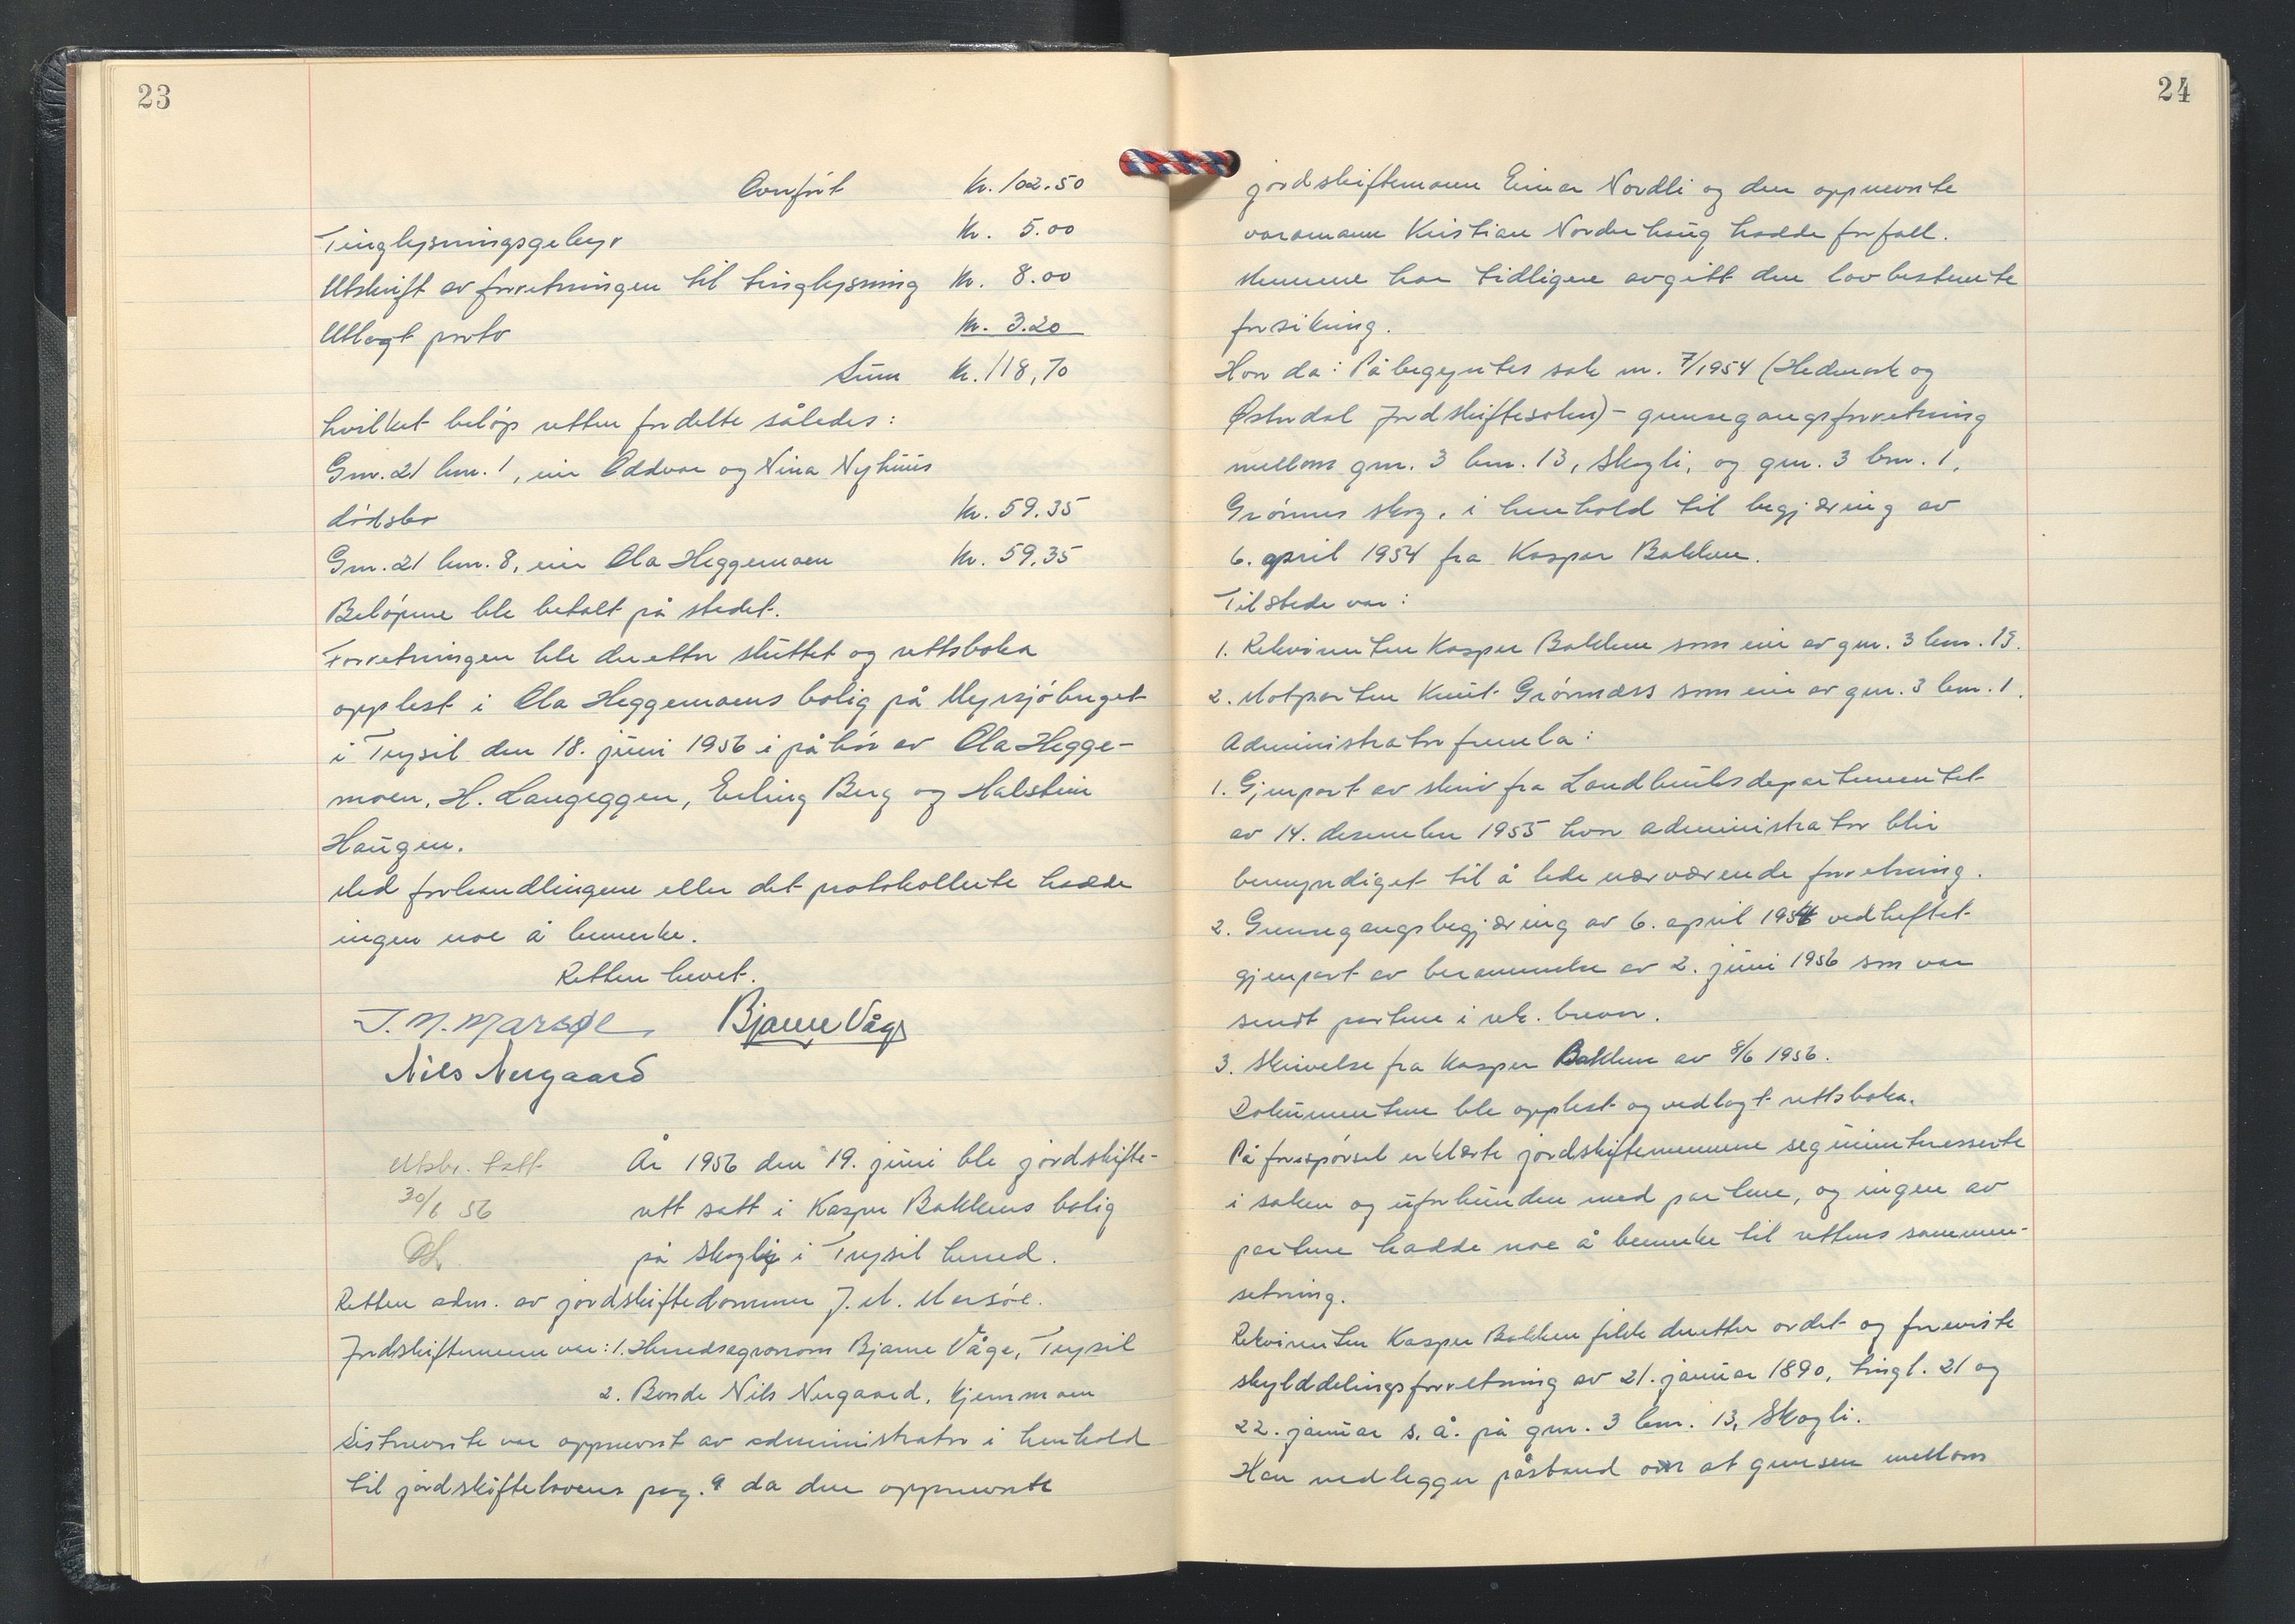 23
Overført Kr. 102.50
Tinglysningsgebyr Kr. 5.00
Utskrift av forretningen til tinglysning Kr. 8.00
Utlagt porto Kr. 3.20
Sum Kr. 118,70
hvilket beløp retten fordelte således:
Gnr. 21 bnr. 1, eier Oddvar og Nina Nyhuus
dødsbo Kr. 59.35
Gnr. 21 bnr. 8, eier Ola Heggemoen Kr. 59.35
Beløpene ble betalt på stedet.
Forretningen ble deretter sluttet og rettsboka
opplest i Ola Heggemoens bolig på Myrsjøberget
i Trysil den 18. juni 1956 i påhør av Ola Hegge-
moen, H. Langeggen, Erling Berg og Halstein
Haugen.
Med forhandlingene eller det protokollerte hadde
ingen noe å bemerke.
Retten hevet.
J. M. Marsøe Bjarne Våge
Nils Nergaard
Utskr. tatt
30/6 56
År 1956 den 19. juni ble jordskifte-
rett satt i Kasper Bakkens bolig
på Skogli i Trysil herred.
Retten adm. av jordskiftedommer J. M. Marsøe.
Jordskiftemenn var: 1. Herredsagronom Bjarne Våge, Trysil
2. Bonde Nils Nergaard, Kjernmoen
Sistnevnte var oppnevnt av administrator i henhold
til jordskiftelovens pag. 9 da den oppnevnte
24
jordskiftemann Einar Nordli og den oppnevnte
varamann Kristian Norderhaug hadde forfall.
Mennene har tidligere avgitt den lovbestemte
forsikring.
Hvor da: Påbegyntes sak nr. 7/1954 (Hedmark og
Østerdal Jordskiftesokn) - grensegangsforretning
mellom gnr. 3 bnr. 13, Skogli, og gnr. 3 bnr. 1,
Grønnes skog, i henhold til begjæring av
6. april 1954 fra Kaspar Bakken.
Tilstede var:
1. Rekvirenten Kasper Bakken som eier av gnr. 3 bnr. 13.
2. Motparten Knut Grønnæss som eier av gnr. 3 bnr. 1.
Administrator fremla:
1. Gjenpart av skriv fra Landbruksdepartementet
av 14. desember 1955 hvor administrator blir
bemyndiget til å lede nærværende forretning.
2. Grensegangsbegjæring av 6. april 1954 vedheftet
gjenpart av berammelse av 2. juni 1956 som var
sendt partene i rek. brever.
3. Skrivelse fra Kasper Bakken av 8/6 1956.
Dokumentene ble opplest og vedlagt rettsboka.
På forespørsel erklærte jordskiftemennene seg uinteresserte
i saken og uforbunden med partene, og ingen av
partene hadde noe å bemerke til rettens sammen-
setning.
Rekvirenten Kasper Bakken fikk deretter ordet og foreviste
skylddelingsforretning av 21. januar 1890, tingl. 21 og
22. januar s. å. på gnr. 3 bnr. 13, Skogli.
Han nedlegger påstand om at grensen mellom